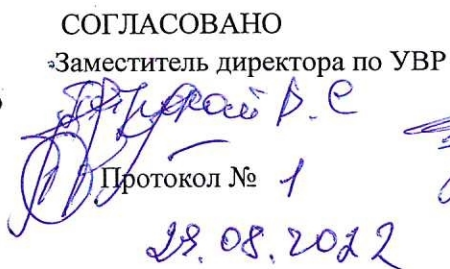 СОГЛАСОВАНО
Заместитель директора по УВР
В. С
Протокол № 1
29.08.2022